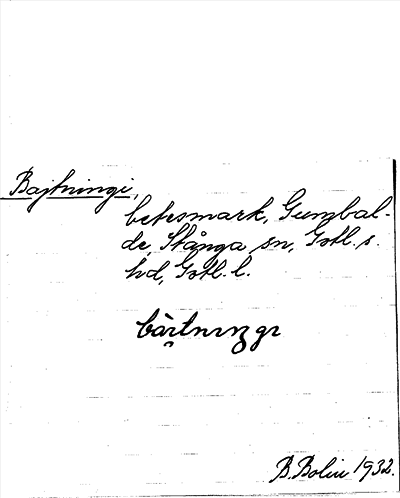 Bajtningi,
betesmark, Gumbal-
de, Stånga sn, Gotl. s.
hd, Gotl. l.
B. Bolin 1932.